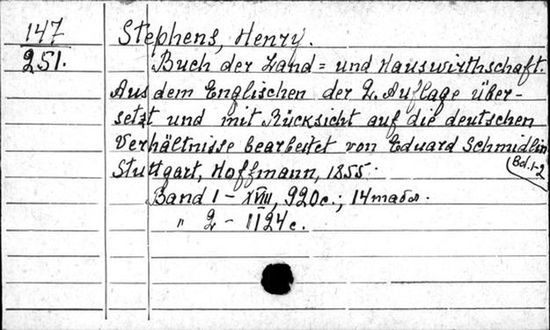 147
251.
Stephens, Henry.
Buch der Land= und Hauswirthschaft.
Aus dem Englischen der 2. Auflage über-
setzt und mit Rücksicht auf die deutschen
Verhältnisse bearbeitet von Eduard Schmidlin
Stuttgart, Hoffmann, 1855.
Bd. 1-2
Band 1 - XVIII, 920c.;
" 2 - 1124c.